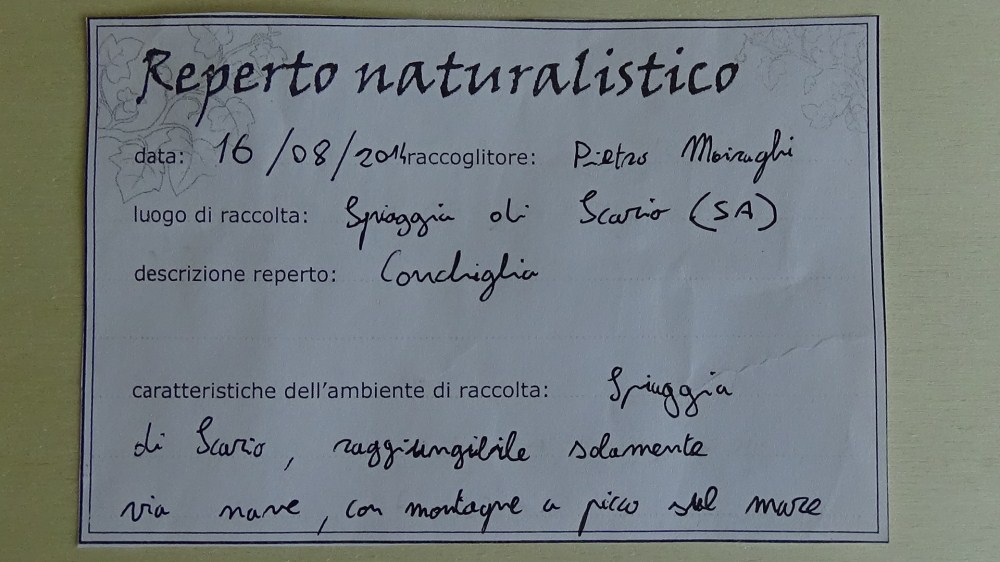 Reperto naturalistico
data: 16/08/2014 raccoglitore: Pietro Moiraghi
luogo di raccolta: Spiaggia di Scario (SA)
descrizione reperto: Conchiglia
caratteristiche dell'ambiente di raccolta: Spiaggia
di Scario, raggiungibile solamente
via nave, con montagne a picco sul mare